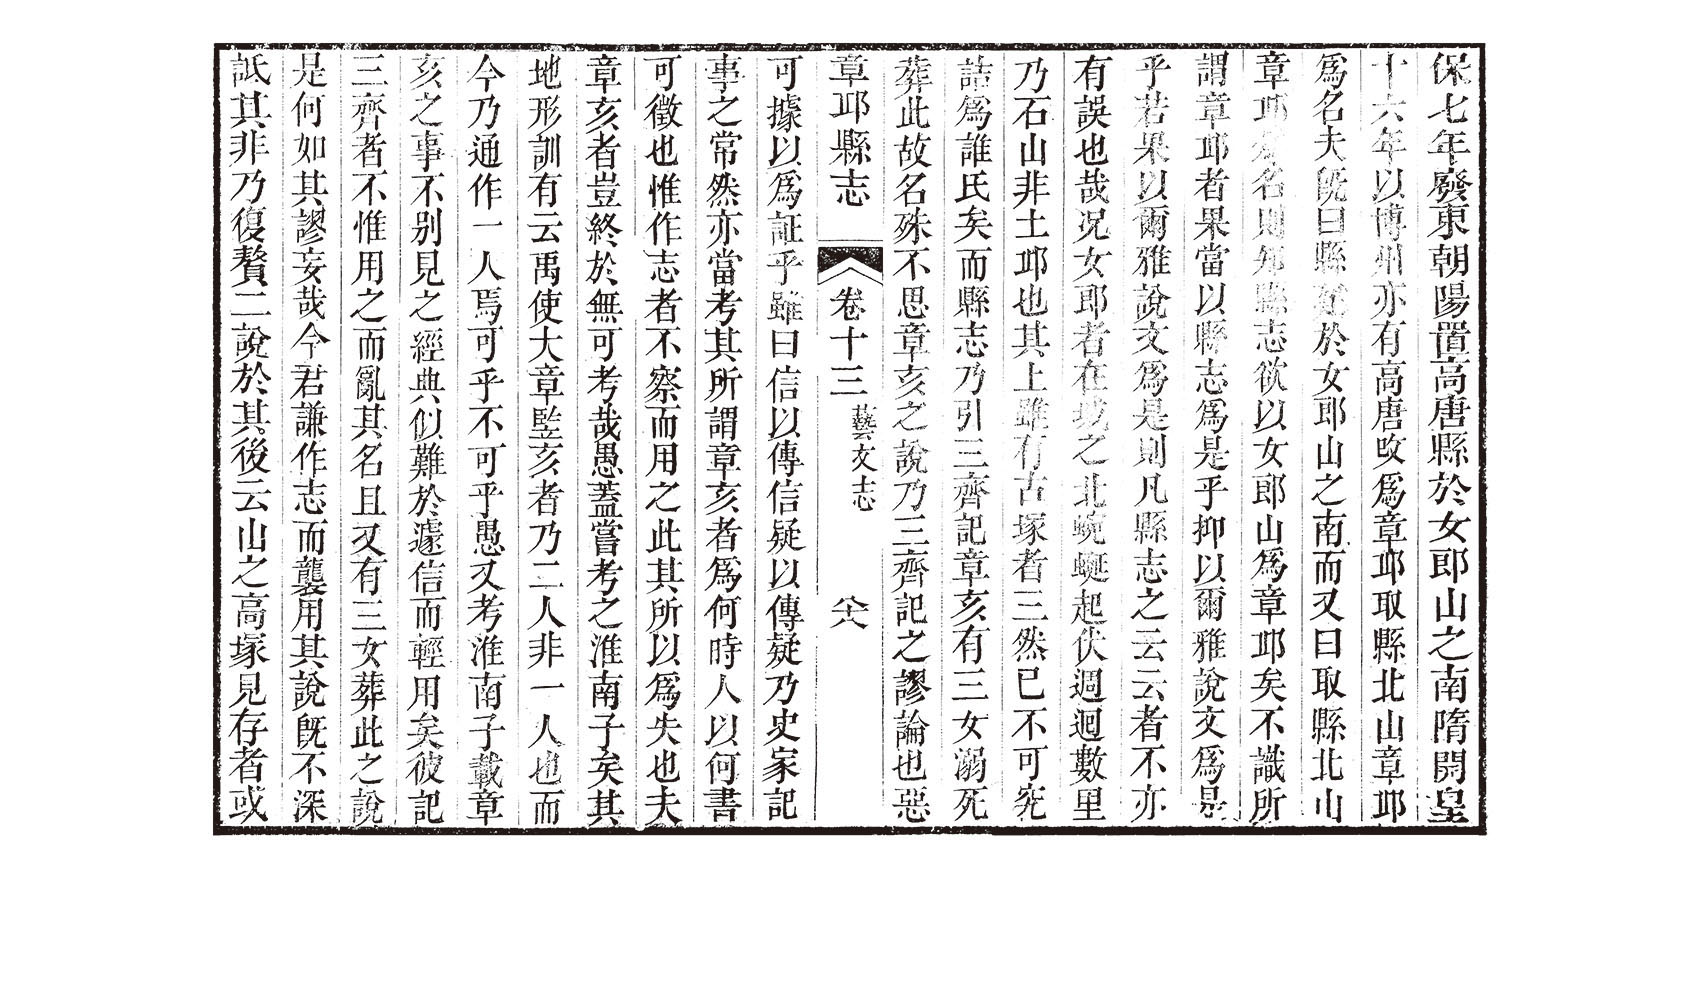 保七年廢東朝陽置高唐縣於女郎山之南隋開皇
十六年以博州亦有高唐攺爲章邱取縣北山章邱
爲名夫旣曰縣 於女郎山之南而又曰取縣北山
章邱爲名則知縣志欲以女郎山爲章邱矣不識所
謂章邱者果當以縣志爲是乎抑以爾雅說文爲是
乎若果以爾雅說文爲是則凡縣志之云云者不亦
有誤也哉况女郎者在城之北蜿蜒起伏週迴數里
乃石山非土邱也其上雖有古塚者三然已不可究
詰爲誰氏矣而縣志乃引三齊記章亥有三女溺死
葬此故名殊不思章亥之說乃三齊記之謬論也惡
章邱縣志 卷十三 藝文志 六十八
可據以爲証乎雖曰信以傳信疑以傳疑乃史家記
事之常然亦當考其所謂章亥者爲何時人以何書
可徵也惟作志者不察而用之此其所以爲失也夫
章亥者豈終於無可考哉愚蓋嘗考之淮南子矣其
地形訓有云禹使大章竪亥者乃二人非一人也而
今乃通作一人焉可乎不可乎愚又考淮南子載章
亥之事不别見之經典似難於遽信而輕用矣彼記
三齊者不惟用之而亂其名且又有三女葬此之說
是何如其謬妄哉今君謙作志而襲用其說旣不深
詆其非乃復贅二說於其後云山之高塚見存者或